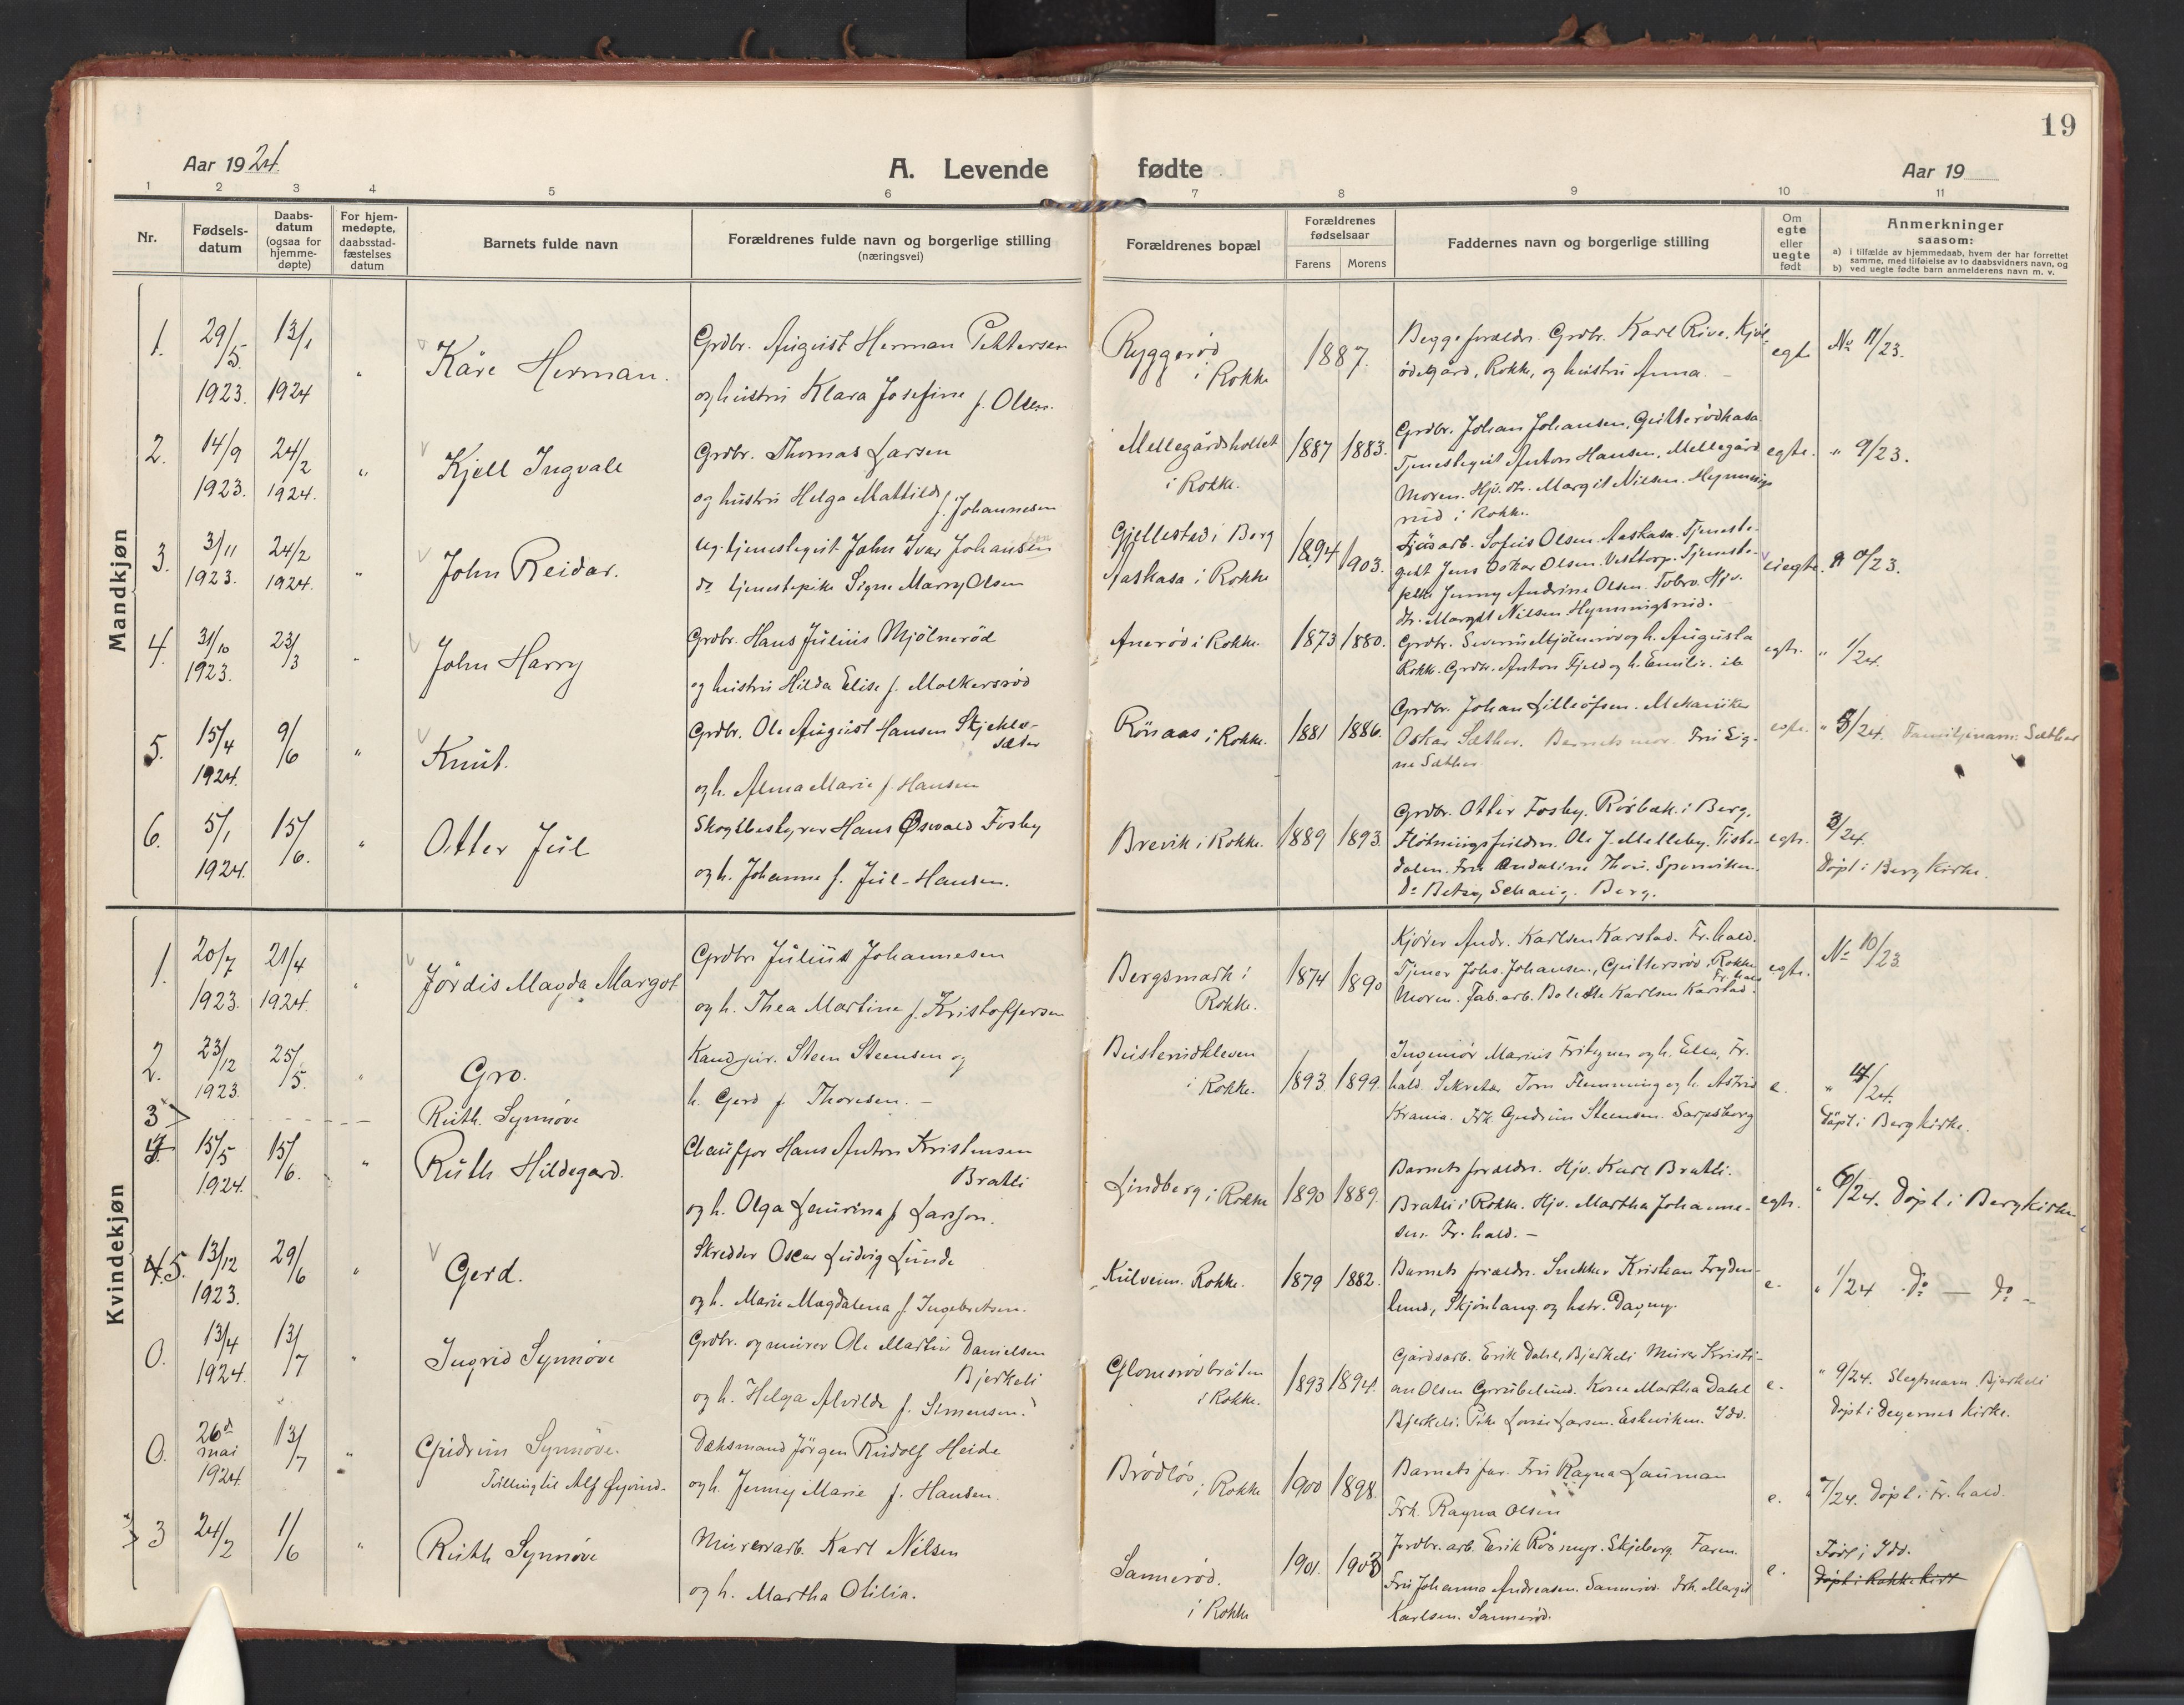 19
Aar 1924.
A. Levende fødte
Aar 19
1 2 3 4 5 6 7 8 9 10 11
Nr.
Fødselsdatum
Daabsdatum (ogsaa for hjemmedøpte)
For hjemmedøpte, daabsstadfæstelses datum
Barnets fulde navn
Forældrenes fulde navn og borgerlige stilling (næringsvei)
Forældrenes bopæl
Forældrenes fødselsaar
Farens Morens
Faddernes navn og borgerlige stilling
Om egte eller uegte født
Anmerkninger saasom:
a) i tilfælde av hjemmedaab, hvem der har forrettet samme, med tilføielse av to daabsvidners navn, og
b) ved uegte fødte barn anmelderens navn m. v.
Mandkjøn
1. 29/5 1923. 13/1 1924 " Kåre Herman.
Grdbr. August Herman Pettersen
og hustru Klara Josefine f. Olsen.
Ryggerød i Rokke
1887.
Begge forældr. Grdbr. Karl Rive, Kjøl-
ødegård, Rokke, og hustru Anna. –
egte No 11/23.
2. 14/9 1923. 24/2 1924. " Kjell Ingvald
Grdbr. Thomas Larsen
og hustru Helga Mathilde f. Johannesen
Mellegårdsholtet i Rokke.
1887 1883.
Grdbr. Johan Johansen, Gulterødkasa
Tjenestegut Anton Hansen, Mellegård
Moren. Hjv. dtr. Margit Nilsen. Hymmings
rud i Rokke.
egte. " 9/23.
3. 3/11 1923. 24/2 1924. " John Reidar.
ug. tjenestegut John Ivar Johansen
do tjenestepike Signe Marry Olsen
Gjellestad i Berg
Aaskasa i Rokke
1894 1903.
Fjøsarb. Sofus Olsen. Aaskasa. Tjeneste-
gut Jens Oskar Olsen. Vesttorp. Tjeneste-
pike Jenny Andrine Olsen. Tobro. Hjv.
dtr. Margit Nilsen. Hymmingsrud.
uegte.
4. 31/10 1923. 23/3 " John Harry
Grdbr. Hans Julius Mjølnerød
og hustru Hilda Elise f. Molkersrød
Anerød i Rokke.
1873 1880.
Grdbr. Severin Mjølnerød og h. Augusta
Rokke. Grdbr. Anton Fjeld og h. Emilie. ib
egte. " 1/24.
5. 15/4 1924. 9/6 " Knut.
Grdbr. Ole August Hansen Skjekle-
sæter
og h. Alma Marie f. Hansen
Rönaas i Rokke.
1881 1886.
Grdbr. Johan Lilleöfsen. Mekaniker
Oskar Sæther. Barnets mor. Fru Sig-
ne Sæther
egte. " 5/24. Familjenavn: Sæther
6. 5/1 1924. 15/6. " Otter Juel
Skogbestyrer Hans Oswald Fosby
og h. Johanne f. Juel-Hansen.
Brevik i Rokke.
1889 1893.
Grdbr. Otter Fosby. Rörbæk i Berg.
Fløtningsfuldm. Ole J. Melleby. Tiste-
dalen. Fru Andaline Thou. Sponviken.
do Betzy Schanig. Berg.
egte. 3/24.
Døpt i Berg Kirke.
Kvindekjøn
1. 20/7 1923. 21/4 1924. " Jørdis Magda Margot
Grdbr. Julius Johannesen
og h. Thea Martine f. Kristoffersen
Bergsmark i Rokke.
1874 1890
Kjører Andr. Karlsen Karstad. Fr.hald.
Tjener Johs. Johansen, Gultersrød i Rokke
Moren. Fab.arb. Bolette Karlsen Karstad. Fr.hald
egte. No 10/23
2. 23/12 1923. 25/5. " Gro.
Kand. jur. Steen Steensen og
h. Gerd f. Thoresen. –
i Rokke.
1893. 1899.
Ingeniør Marius Fritzner og h. Ella, Fr.
hald. Sekretær Tom Flemming og h. Astrid
Krania. Frk. Gudrun Steensen. Sarpsborg
e. " 14/24.
Døpt i Berg Kirke.
3 Ruth. Synnøve
4. 15/5 1924. 15/6. " Ruth Hildegard.
Chauffør Hans Anton Kristensen
Bratli
og h. Olga Laurina f. Larsson.
Lindberg i Rokke
1890 1889.
Barnets forældr. Hjv. Karl Bratli.
Bratli i Rokke. Hjv. Martha Johanne-
sen. Fr.hald. –
egte. " 6/24. Døpt i Berg Kirke
4. 5. 13/12 1923. 29/6 " Gerd.
Skredder Oscar Ludvig Lunde
og h. Marie Magdalena f. Ingebretsen.
Kulveien. Rokke.
1879 1882.
Barnets forældr. Snekker Kristian Fryden-
lund, Skjönlaug. og hstr. Dagny.
e. " 1/24 do – do –
0. 13/4 1924. 13/7 " Ingrid Synnøve
Grdbr. og murer Ole Martin Danielsen
Bjerkeli
og h. Helga Alvilda f. Simensen.
Glomsrødbråten i Rokke.
1893 1894.
Gårdsarb. Erik Dahl, Bjerkeli Murer Kristi-
an Olsen Grubelund. Kone Martha Dahl
Bjerkeli. Pike Lovise Larsen. Eskeviken. Idd.
e. " 9/24. Slegtnavn Bjerkeli
Døpt i Degernes Kirke.
0. 26de mai 1924. 13/7 " Gudrun Synnöve.
Tvilling til Alf Øyvind.
Dæksmand Jörgen Rudolf Heide
og h. Jenny Marie f. Hansen.
Brødløs i Rokke
1900 1898.
Barnets far. Fru Ragna Lauman
Frk. Ragna Olsen
e. " 7/24. Døpt i Fr.hald.
3 24/2 1/6 " Ruth Synnøve
Murerarb. Karl Nilsen
og h. Martha Otilia.
Sannerød. i Rokke
1901. 1903
Jordbr. arb. Erik Rösmyr. Skjeberg. Faren.
Fru Johanna Andreasen. Sannerød. Frk. Margit
Karlsen. Sannerød.
e. Født i Idd.
Døpt i Rokke Kirke